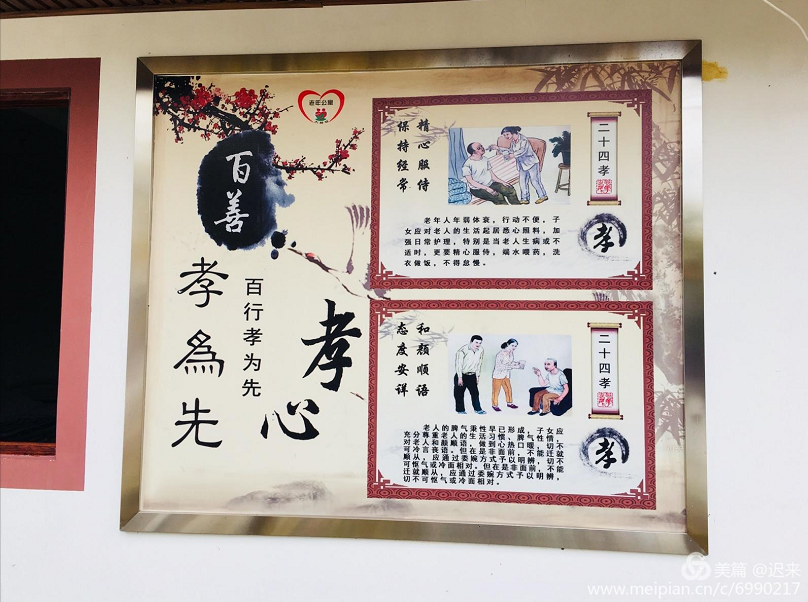 老年公寓
百善
孝為先
百行孝为先
孝心
精心服侍
保持经常
二十四孝
孝
老年人年弱体衰，行动不便，子
女应对老人的生活起居悉心照料，加
强日常护理，特别是当老人生病或不
适时，更要精心服侍，端水喂药，洗
衣做饭，不得怠慢。
和颜顺语
态度安详
二十四孝
孝
老人的脾气秉性早已形成，子女应
充分尊重老人的生活习惯、脾气性情，
对老人和颜顺语，做到心热口暖，切不
可冷言丧语。但在是非面前，不能迁就
顺从，应通过委婉方式予以明辨，切不
可怄气或冷面相对。但在是非面前，不能
迁就顺从，应通过委婉方式予以明辨，
切不可怄气或冷面相对。
美篇 @迟来
www.meipian.cn/c/6990217